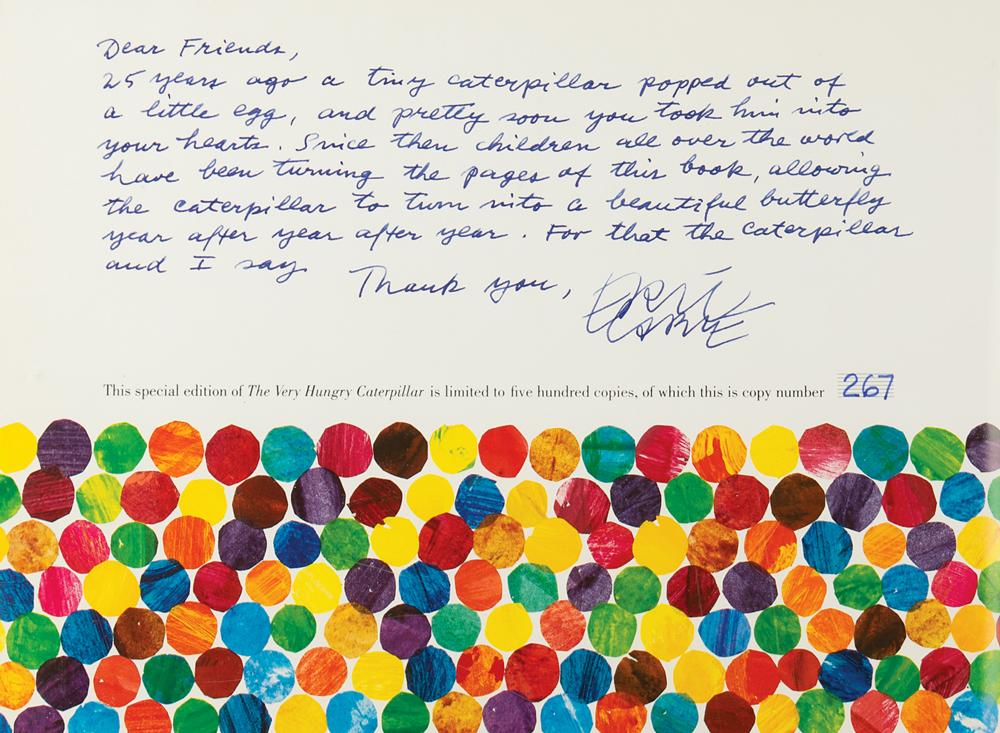 Dear Friends,
25 years ago a tiny caterpillar popped out of
a little egg, and pretty soon you took him into
your hearts. Since then children all over the world
have been turning the pages of this book, allowing
the caterpillar to turn into a beautiful butterfly
year after year after year. For that the caterpillar
and I say
Thank you,
ERIC
CARLE
This special edition of The Very Hungry Caterpillar is limited to five hundred copies, of which this is copy number 267